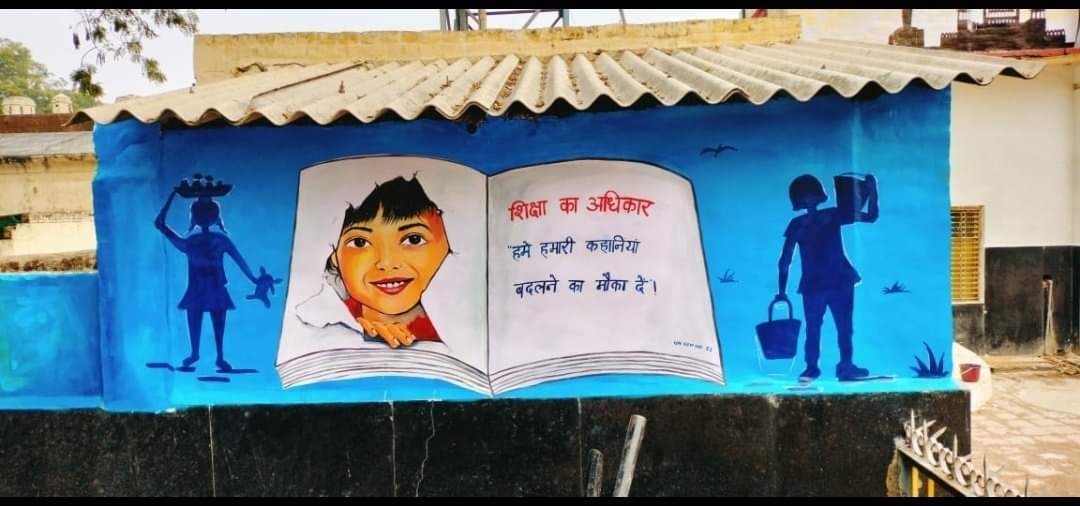 शिक्षा का अधिकार
"हमे हमारी कहानियां
बदलने का मौका दें"।